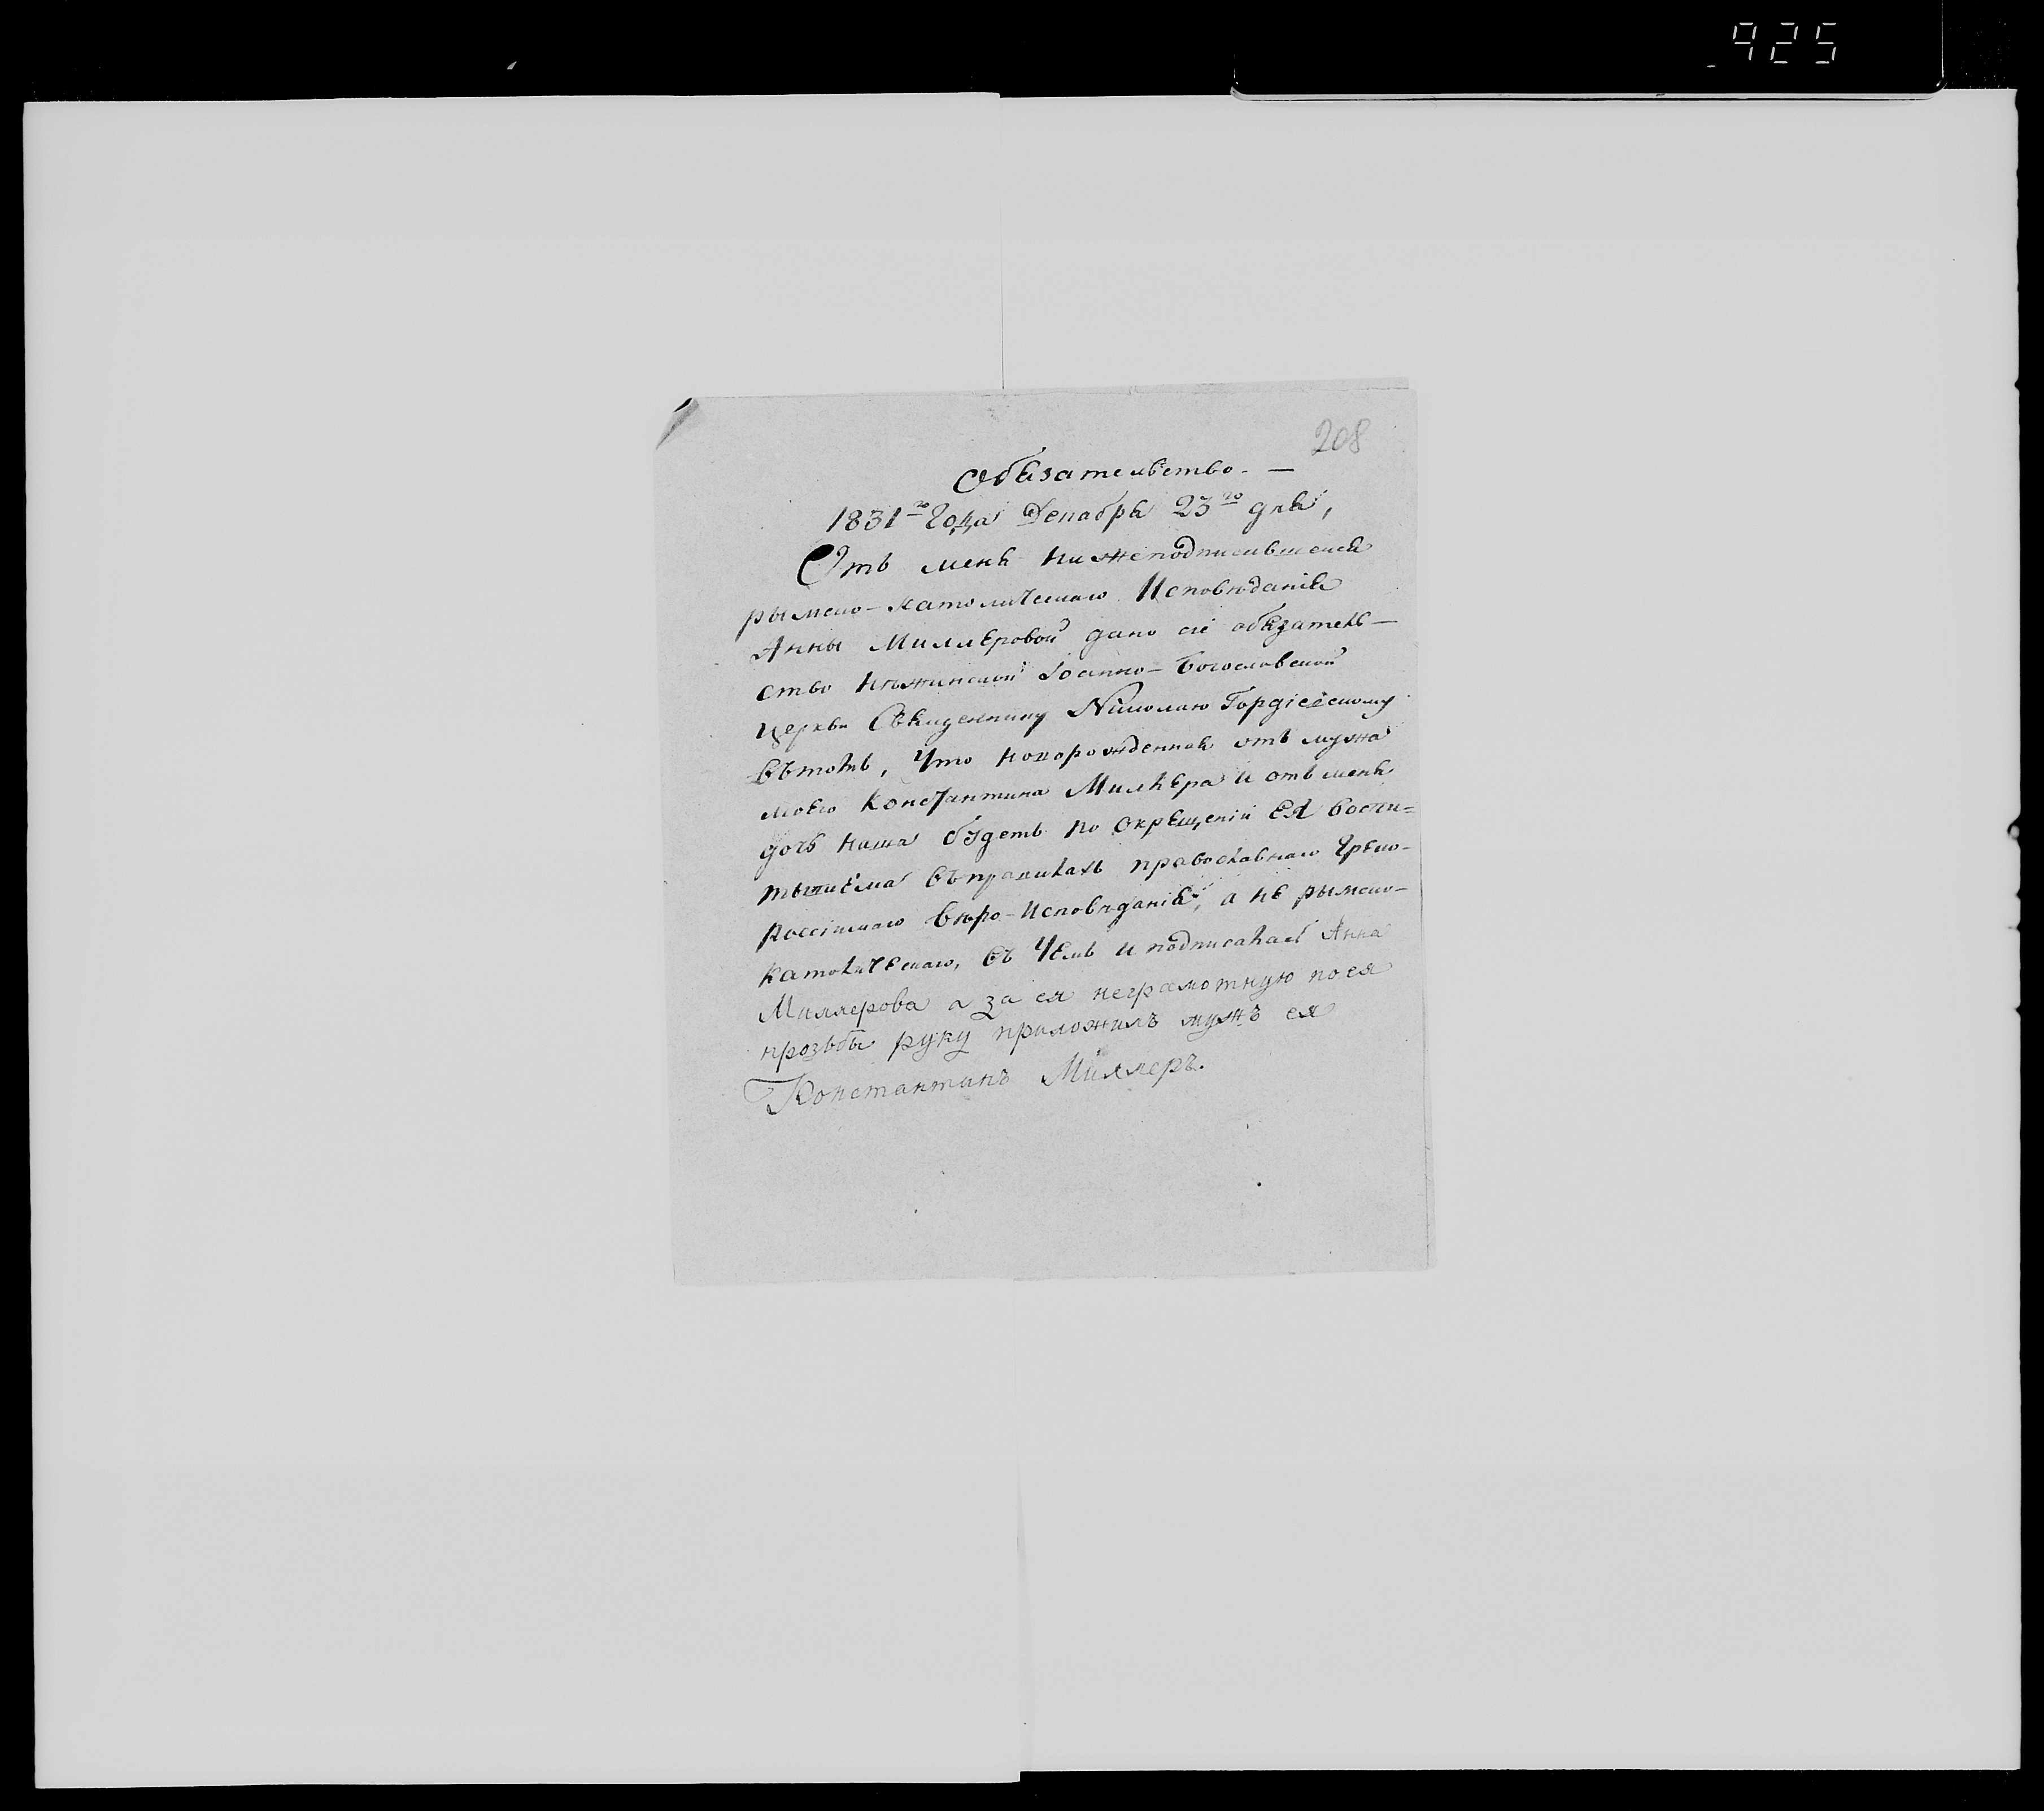 925
208
Обязательство. —
1831го Года Декабря 23го дня,
Отъ меня нижеподписавшейся
рымско-католическаго Исповѣданія
Анны Миллеровой дано сіе обязатель-
ство Нѣжинской Іоанно-Богословской
церкви Священнику Николаю Гордіевскому
вътомъ, Что новорожденная отъ мужа
моего Константина Миллера и отъ меня
дочь наша будетъ по окрещеніи ЕЯ воспи=
тываема въправилахъ православнаго Греко-
Россійскаго вѣро-Исповѣданія, а не рымско-
католическаго, въ Чемъ и подписалась Анна
Миллерова а за ея неграмотную по ея
прозьбы руку приложилъ мужъ ея
Константинъ Миллеръ.